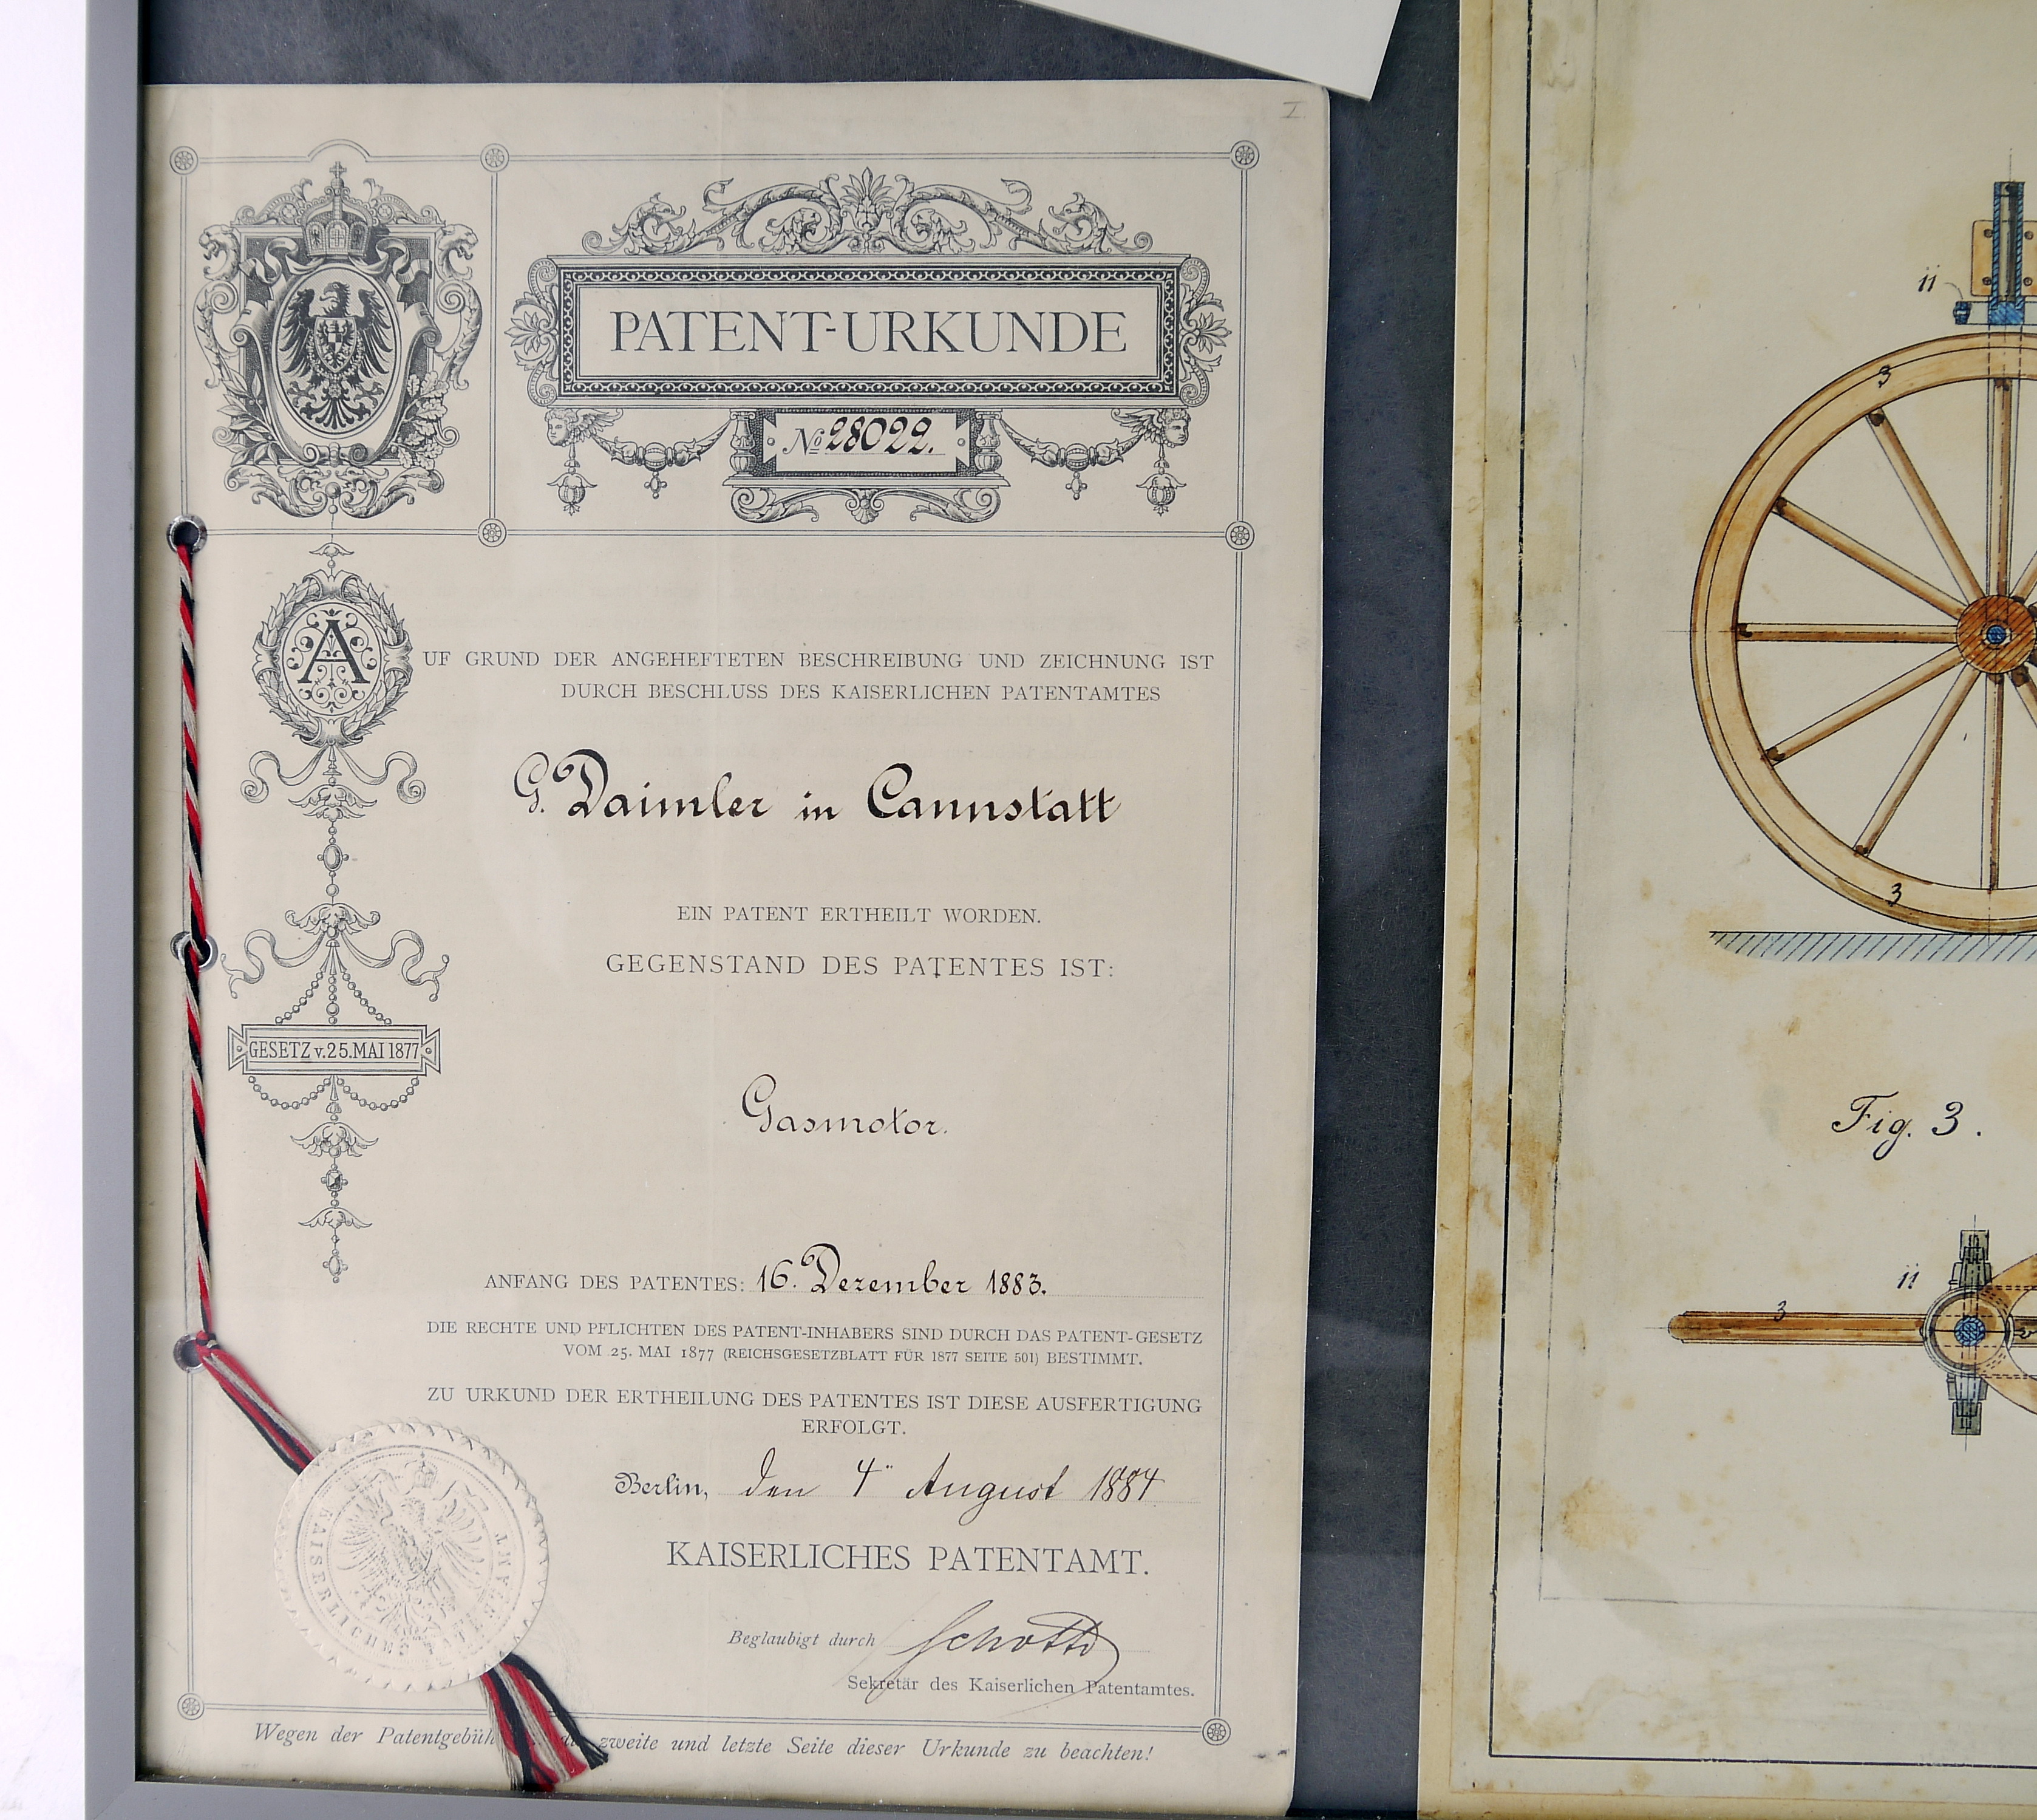 I
PATENT-URKUNDE
№ 28022.
AUF GRUND DER ANGEHEFTETEN BESCHREIBUNG UND ZEICHNUNG IST
DURCH BESCHLUSS DES KAISERLICHEN PATENTAMTES
G. Daimler in Cannstatt
EIN PATENT ERTHEILT WORDEN.
GEGENSTAND DES PATENTES IST:
GESETZ v. 25. MAI 1877
Gasmotor.
ANFANG DES PATENTES: 16. Dezember 1883.
DIE RECHTE UND PFLICHTEN DES PATENT-INHABERS SIND DURCH DAS PATENT-GESETZ
VOM 25. MAI 1877 (REICHSGESETZBLATT FÜR 1877 SEITE 501) BESTIMMT.
ZU URKUND DER ERTHEILUNG DES PATENTES IST DIESE AUSFERTIGUNG
ERFOLGT.
Berlin, den 4" August 1884
KAISERLICHES PATENTAMT.
KAISERLICHES PATENTAMT
Beglaubigt durch
Sekretär des Kaiserlichen Patentamtes.
Wegen der Patentgebüh zweite und letzte Seite dieser Urkunde zu beachten!
11
3
3
Fig. 3.
11
3